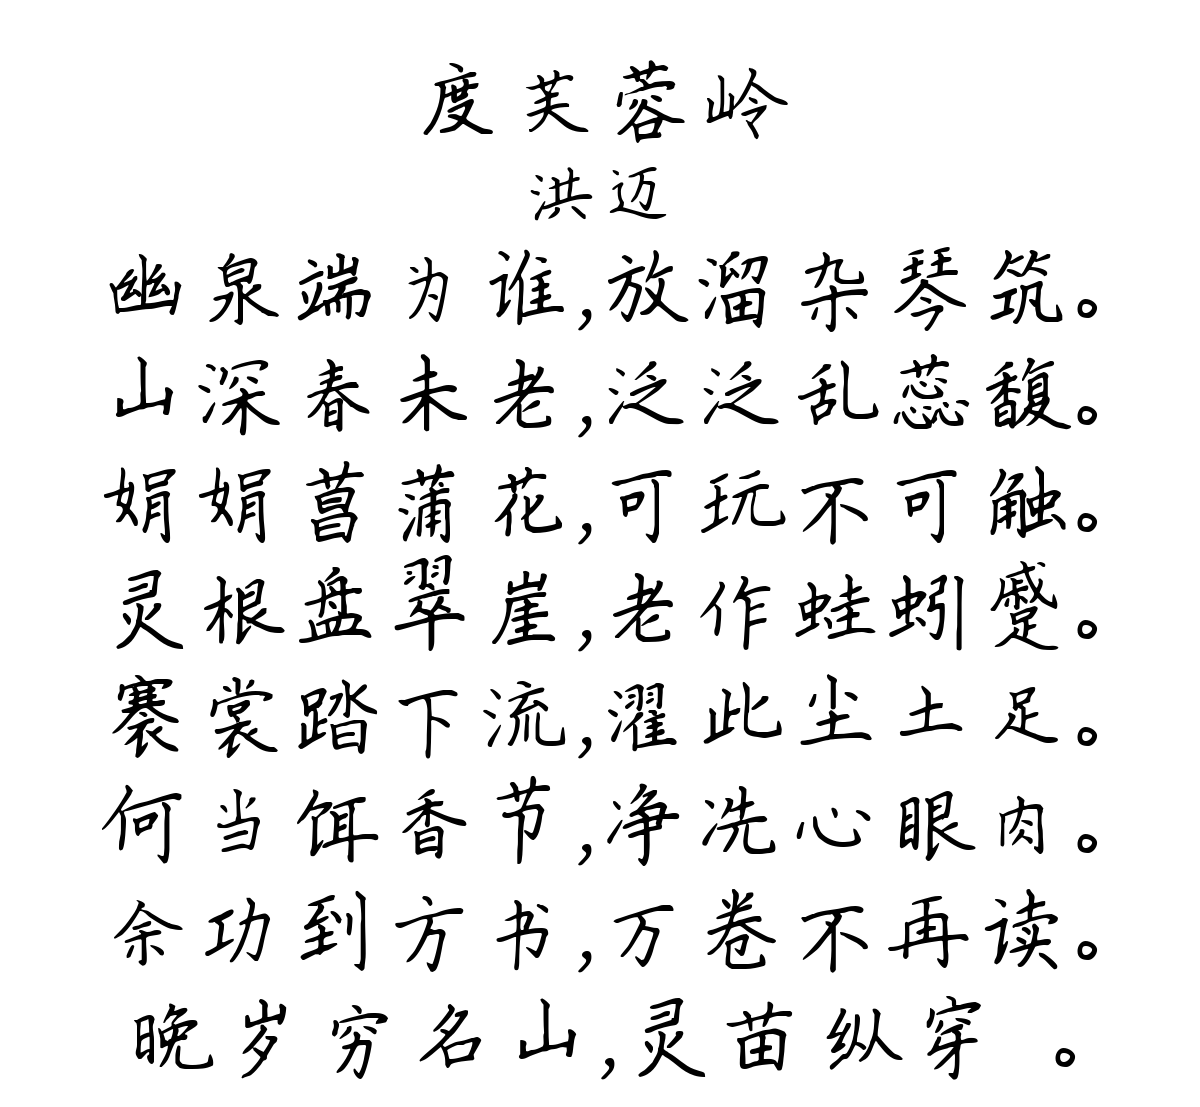 度芙蓉岭
洪迈
幽泉端为谁,放溜杂琴筑。
山深春未老,泛泛乱蕊馥。
娟娟菖蒲花,可玩不可触。
灵根盘翠崖,老作蛙蚓蹙。
褰裳踏下流,濯此尘土足。
何当饵香节,净冼心眼肉。
余功到方书,万卷不再读。
晚岁穷名山,灵苗纵穿 。